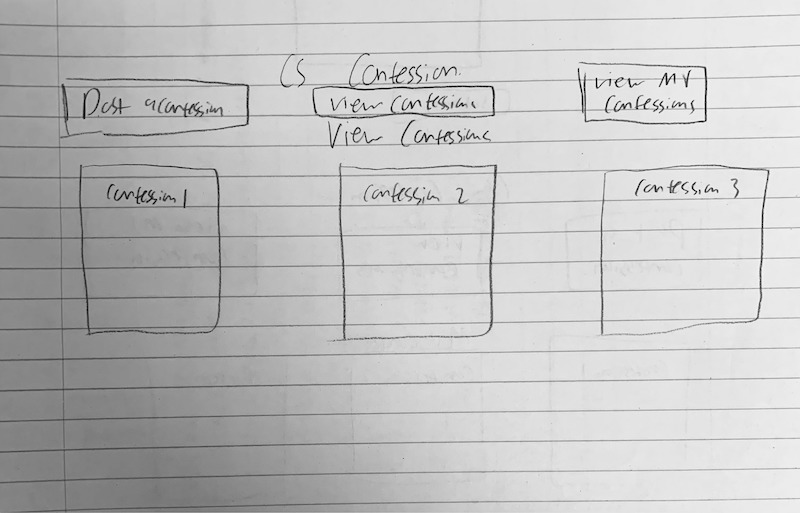 CS Confession
Post a confession
view confessions
view My
confessions
View Confessions
confession 1
confession 2
confession 3